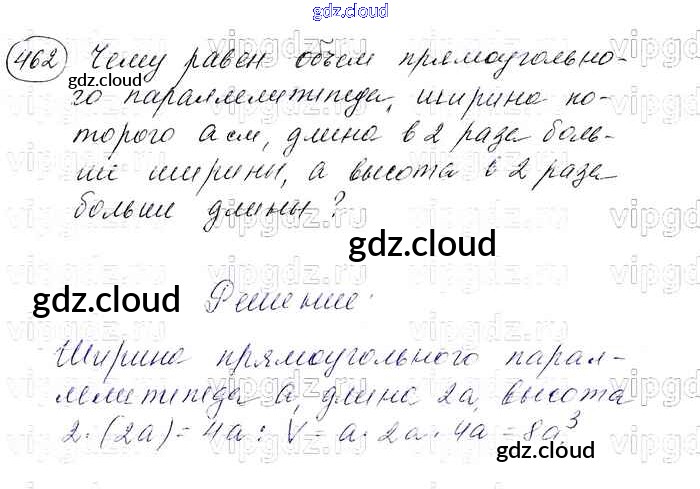 gdz.cloud
462 Чему равен объем прямоугольно-
gdz.cloud
го параллелепипеда, ширина ко-
торого а см, длина в 2 раза боль-
ше ширины, а высота в 2 раза
больше длины?
gdz.cloud
gdz.cloud Решение:
Ширина прямоугольного парал-
лелепипеда а, длина 2а, высота
2·(2а) = 4а: V = а · 2а · 4а = 8а³
gdz.cloud